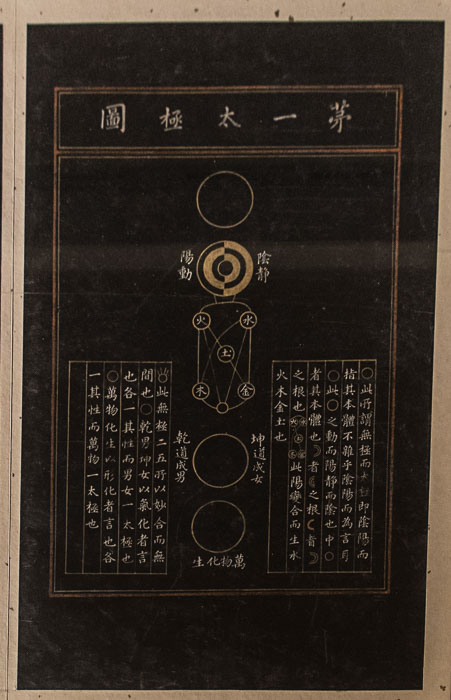 苐一太極圖
陰靜
陽動
水
火
土
金
木
坤道成女
乾道成男
萬物化生
○此所謂無極而太極即陰陽而
指其本體不雜乎陰陽而為言耳
此○之動而陽靜而陰也中○
者其本體也☽者☾之根☾者☽
之根也 此陽變合而生水
火木金土也
此無極二五所以妙合而無
間也○乾男坤女以氣化者言
也各一其性而男女一太極也
○萬物化生以形化者言也各
一其性而萬物一太極也